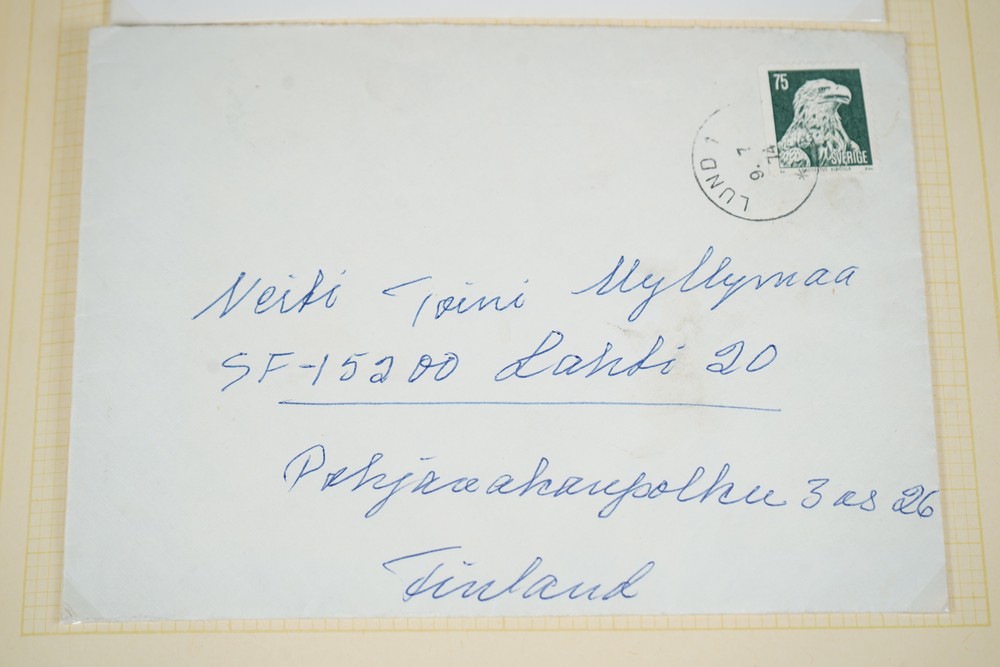 75
SVERIGE
LUND 1
9. 7
74
Neiti Toini Myllymaa
SF-15200 Lahti 20
3 as 26
Finland